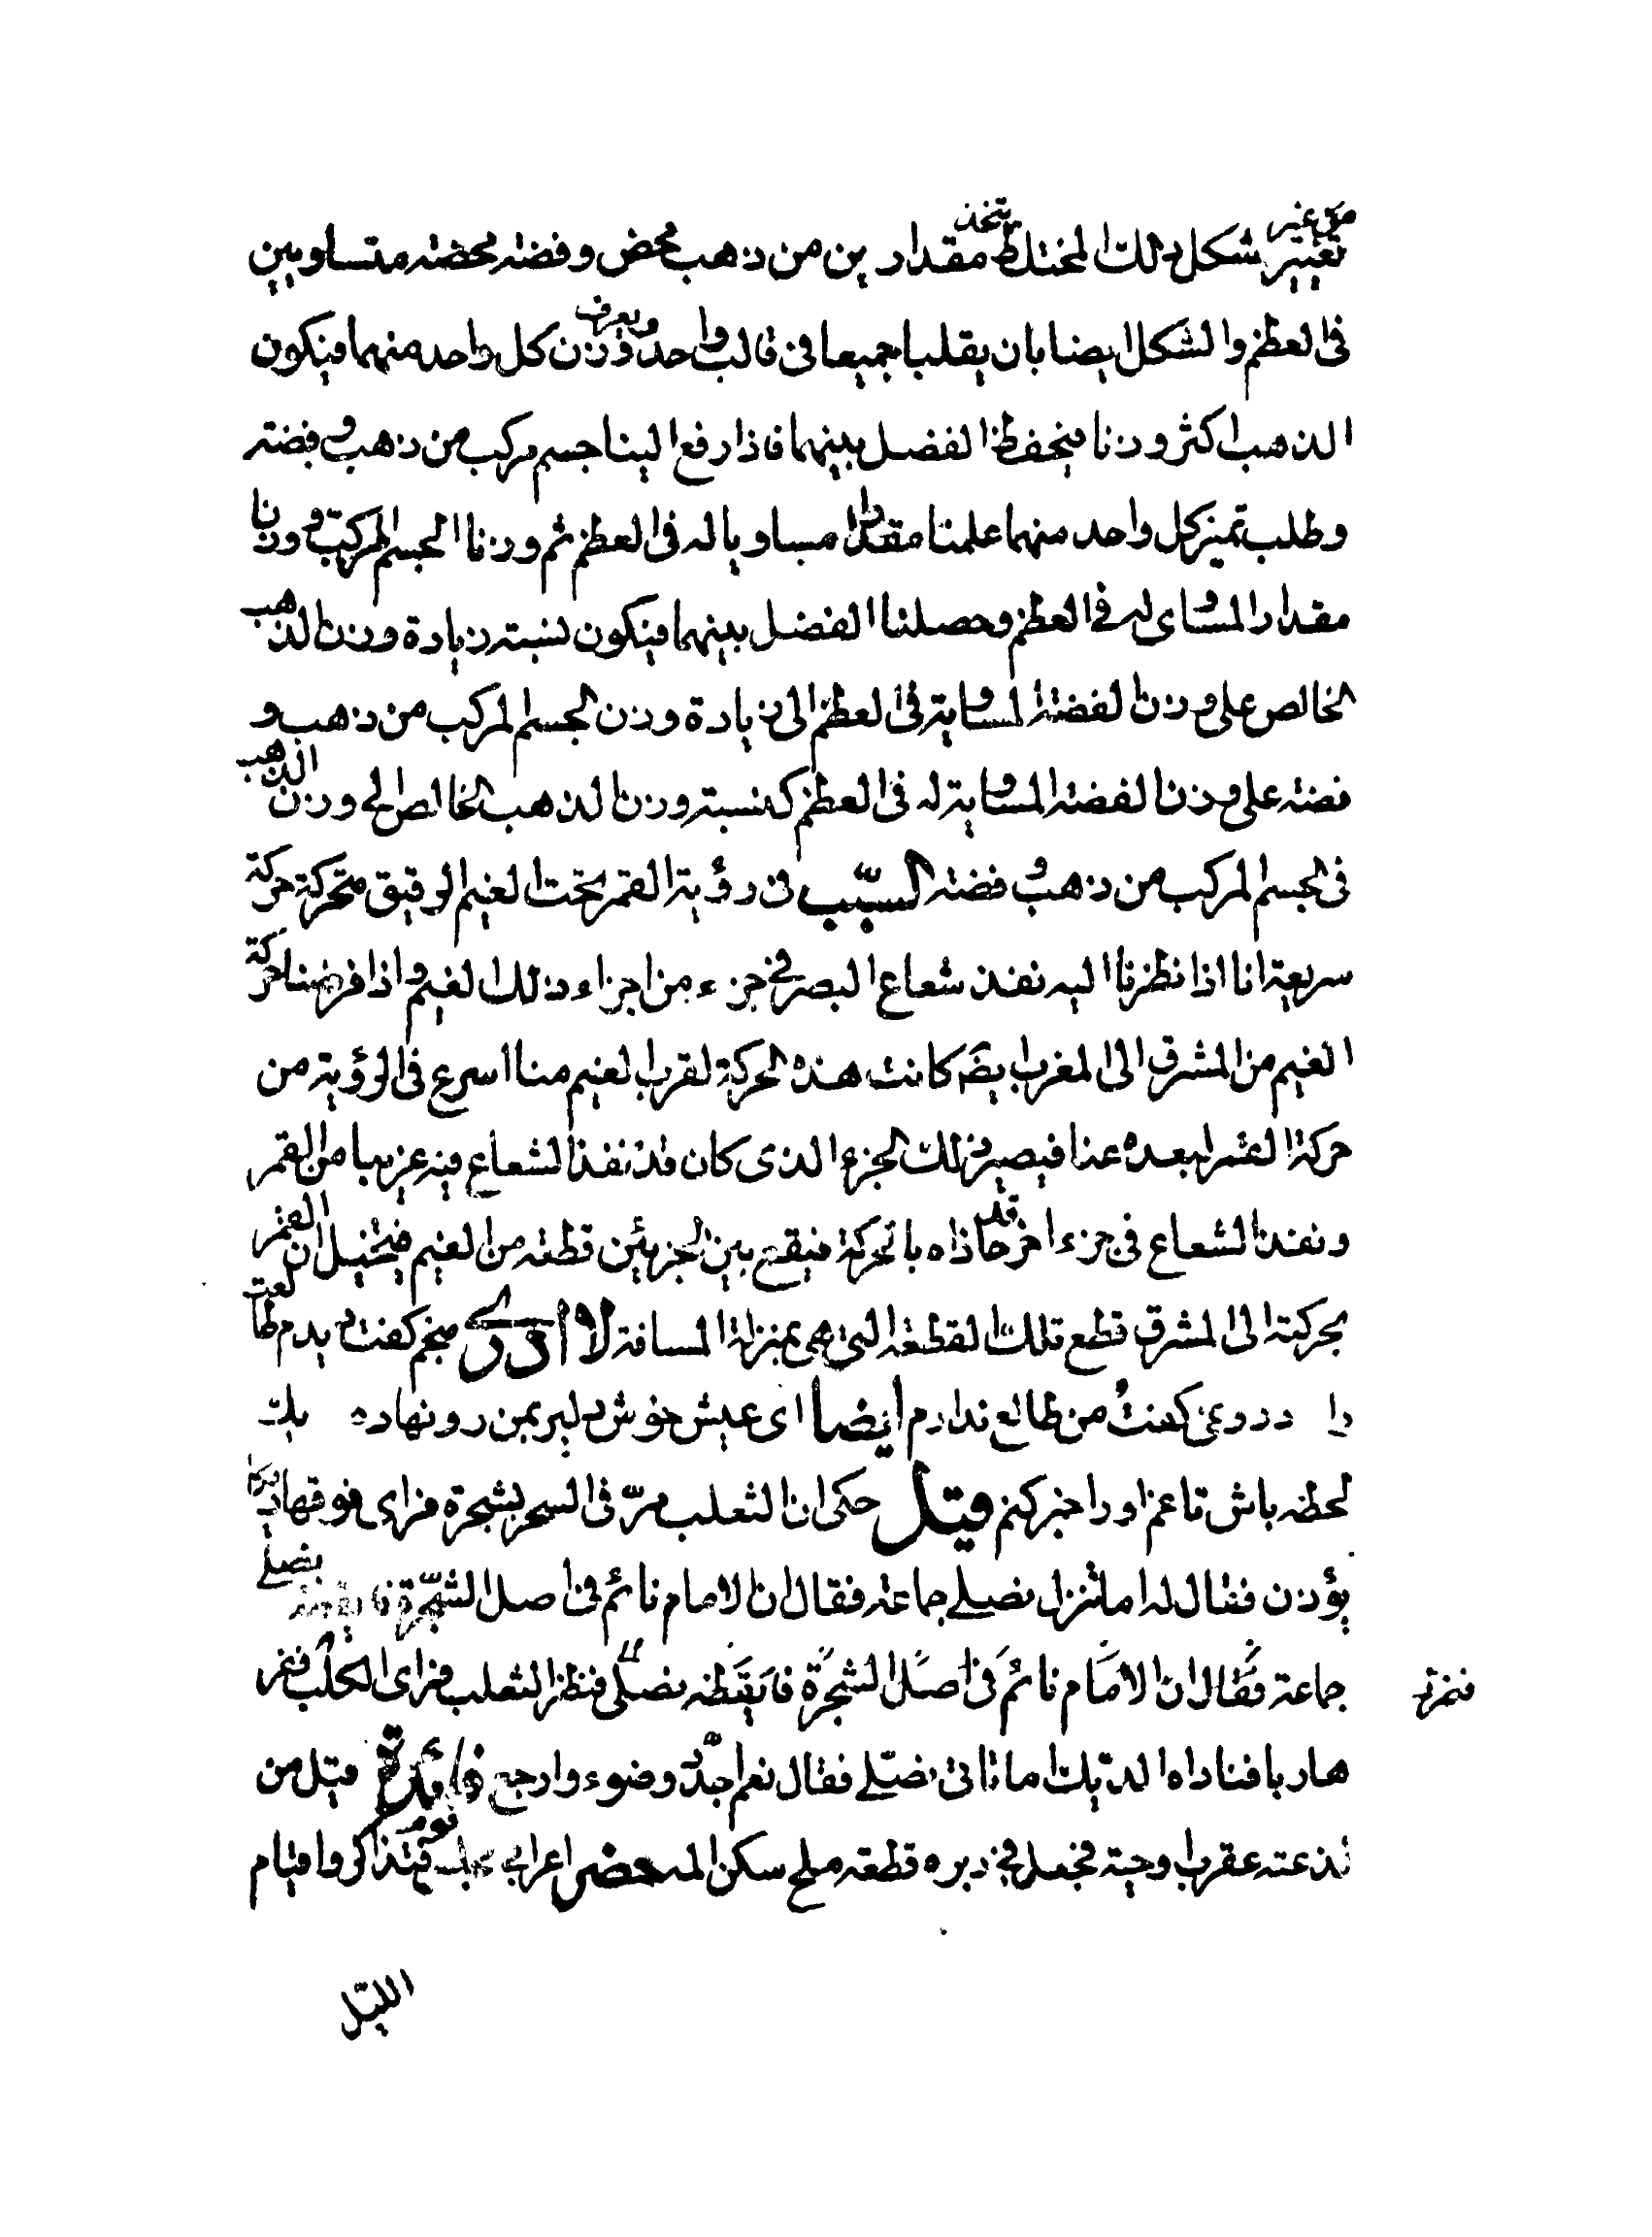 من غير
تغيير شكل ذلك المختلط نتخذ مقدارين من ذهب محض وفضة محضة متساويين
فى العظم والشكل ايضا بان يقلبا جميعا فى قالب واحد ويعرف وزن كل واحد منهما فيكون
الذهب اكثر وزنا فيحفظ الفضل بينهما فاذا رفع الينا جسم مركب من ذهب و فضة
وطلب تميز كل واحد منهما علمنا مقدارا مساويا له فى العظم ثم وزنا الجسم المركب و وزنا
مقدار المساوى له فى العظم وحصلنا الفضل بينهما فيكون نسبته زيادة وزن الذهب
الخالص على وزن الفضة المساوية فى العظم الى زيادة وزن الجسم المركب من ذهب و
فضة على وزن الفضة المساوية له فى العظم كنسبة وزن الذهب الخالص الى وزن الذهب
فى الجسم المركب من ذهب و فضة السبب فى رؤية القمر تحت الغيم الرقيق متحركة حركة
سريعة انا اذا نظرنا اليه نفذ شعاع البصر فى جزء من اجزاء ذلك الغيم و اذا فرضنا حركة
الغيم من المشرق الى المغرب يضَم كانت هذه الحركة لقرب الغيم منا اسرع فى الرؤية من
حركة القمر لبعده عنا فيصير ذلك الجزء الذى كان قد نفذ الشعاع فيه غربيا من القمر
ونفذ الشعاع فى جزء اخر قد حاذاه بالحركة فيقع بين الجزئين قطعة من الغيم فيتخيل ان القمر
بحركته الى المشرق قطع تلك القطعة التى هى بمنزلة المسافة لا ادرى منجم كفت ديدم طالعت
را دروغى كفت من طالع ندارم ايضا اى عيش خوش دلير بمن رو نهاده يك
لحظه باش تا غم او را خبر كنم قيل حكى ان الثعلب مرّ فى السحر بشجرة فراى فوقها ديكا
يؤذن فقال له اما تنزل نصلى جماعة فقال ان الامام نائم فى اصل الشجرة فايقظه نصلى
جماعة فقال ان الامام نائم فى اصل الشجرة فايقظه نصلى فنظر الثعلب فراى الكلب ففر
هاربا فناداه الديك اما تاتى نصلى فقال نعم اجدّد وضوء وارجع فائدة قيل من
لذعته عقرب او حية فجعل فى دبره قطعة ملح سكن الم حضر اعرابى مجلس قوم فتذاكروا قيام
الليل